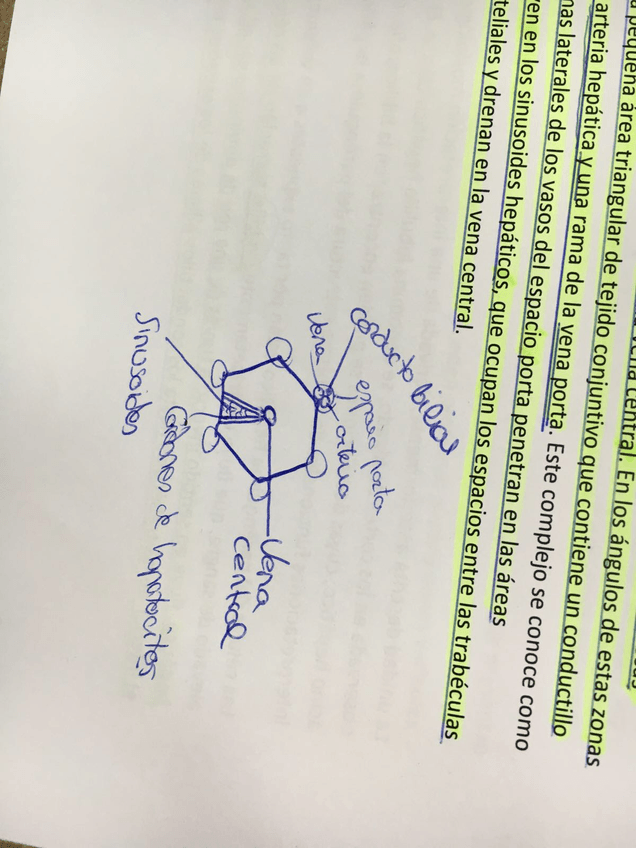 vena central. En los ángulos de estas zonas
pequeña área triangular de tejido conjuntivo que contiene un conductillo
arteria hepática y una rama de la vena porta. Este complejo se conoce como
nas laterales de los vasos del espacio porta penetran en las áreas
en en los sinusoides hepáticos, que ocupan los espacios entre las trabéculas
teliales y drenan en la vena central.
conducto biliar
vena
espacio porta
arteria
Vena
central
Sinusoides
Cordones de hepatocitos